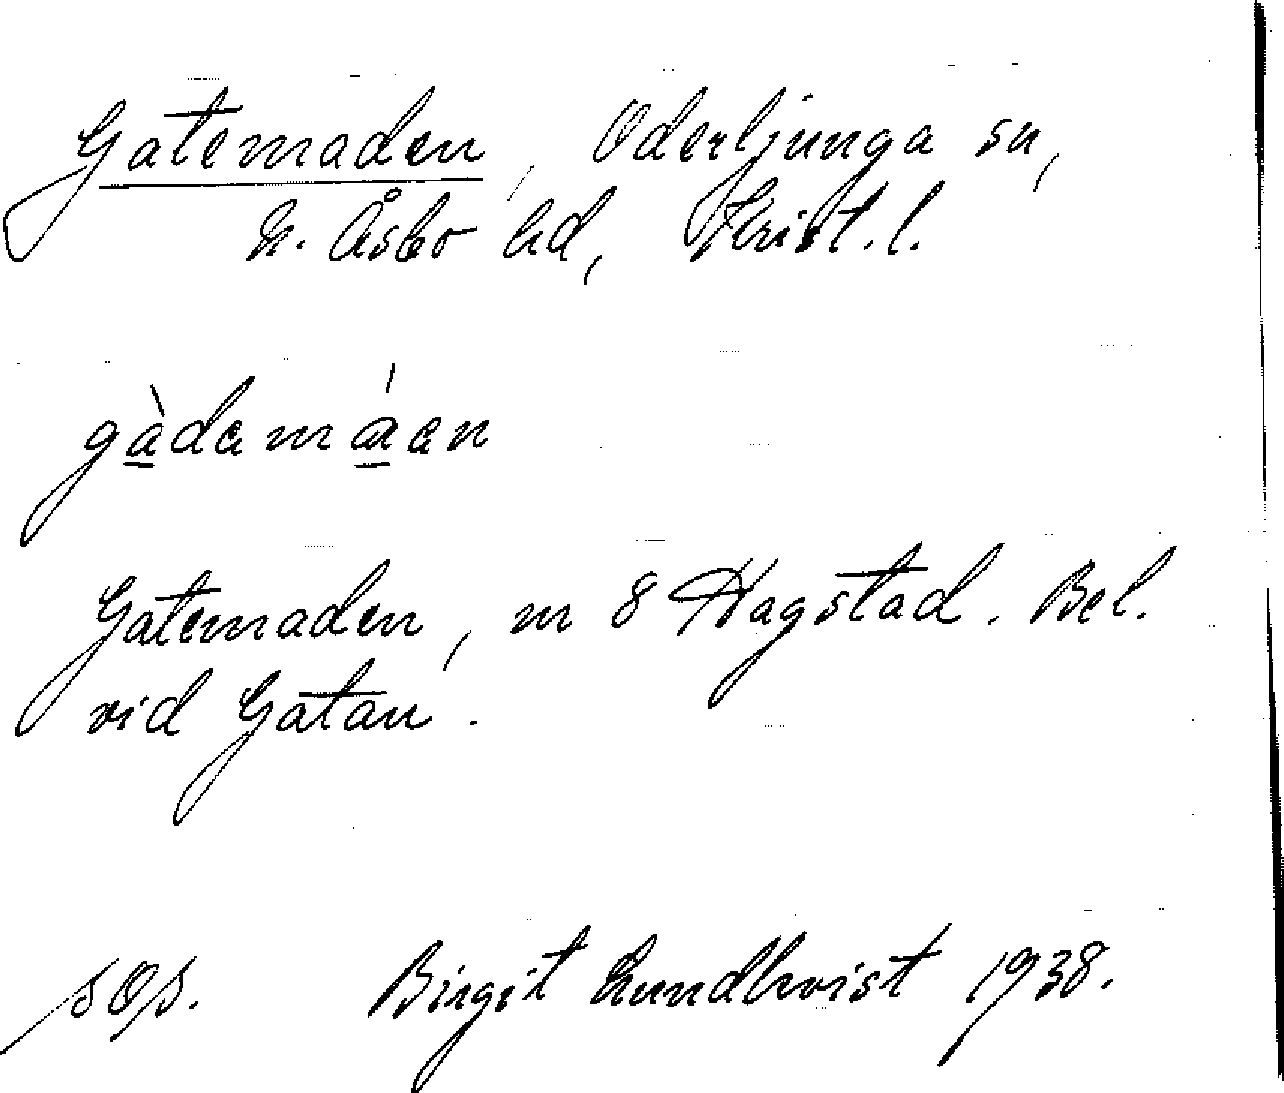 Gatemaden, Oderljunga sn,
N. Åsbo hd, Krist. l.
gàdamáen
Gatemaden, m 8 Hagstad. Bel.
vid Gatan.
Birgit Lundkvist 1938.